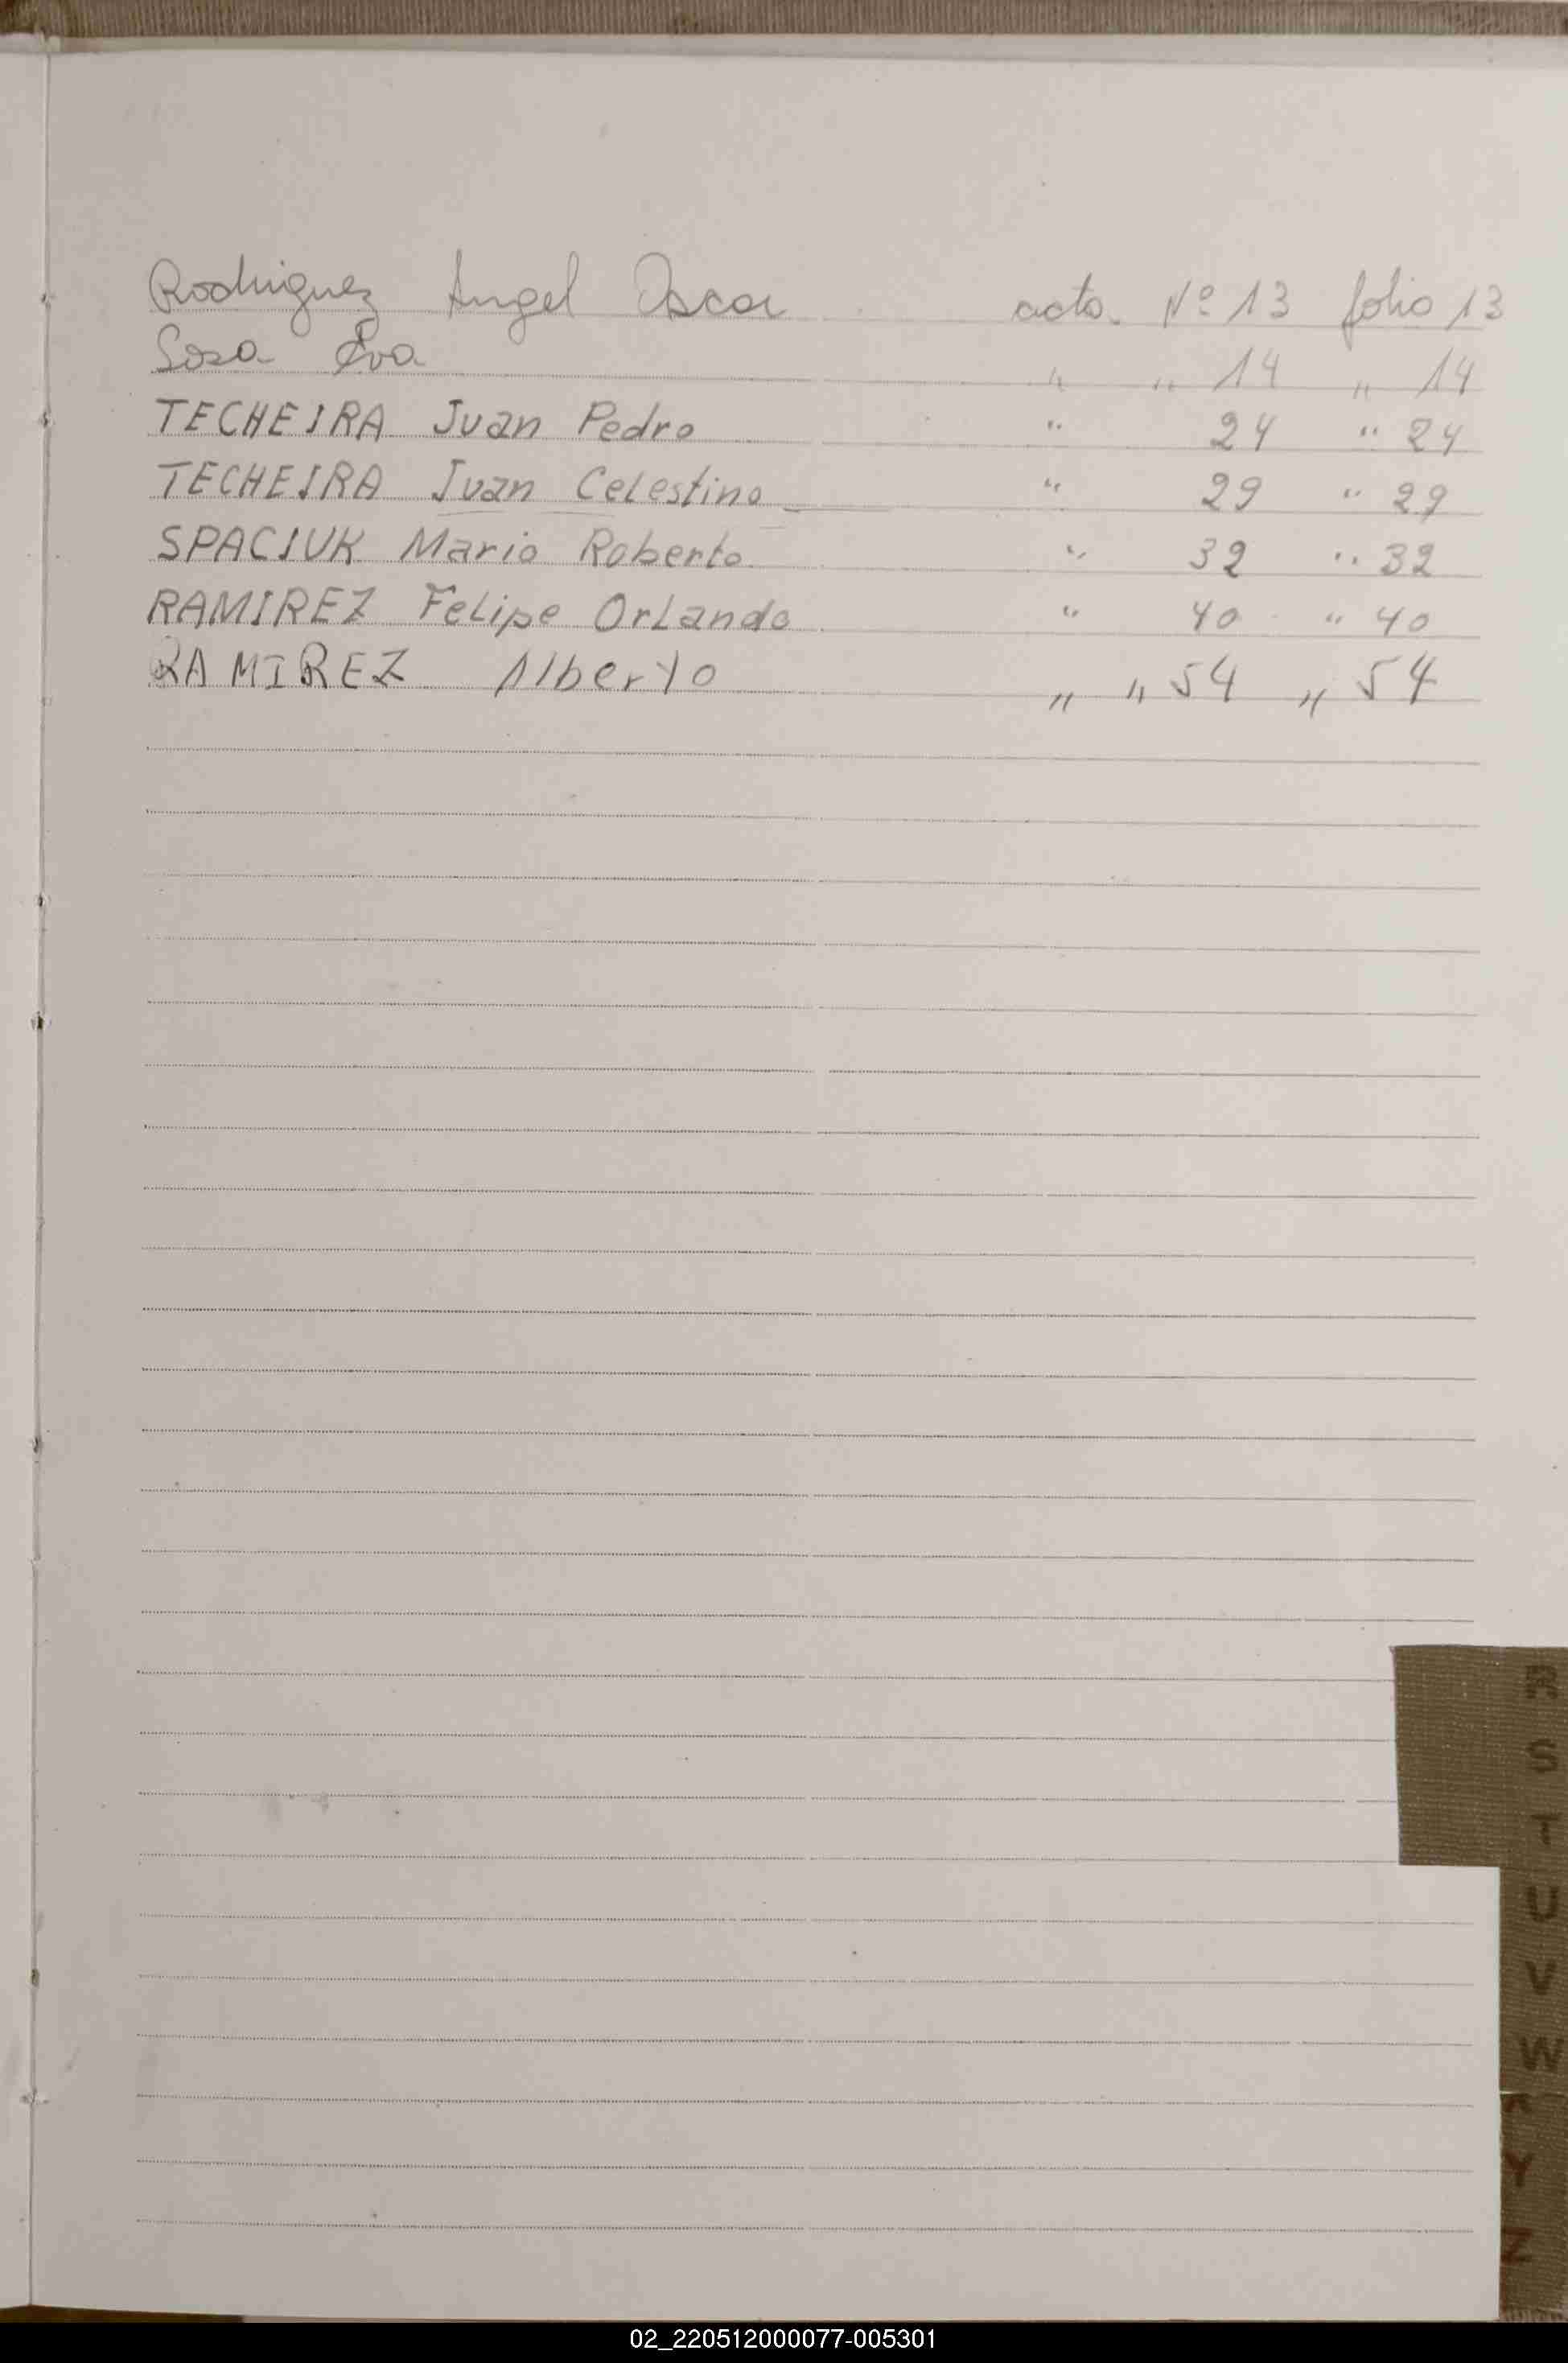 Rodriguez Angel Oscar acta Nº 13 folio 13
Sosa Eva " " 14 " 14
TECHEIRA Juan Pedro " 24 " 24
TECHEIRA Juan Celestino " 29 " 29
SPACIUK Mario Roberto " 32 " 32
RAMIREZ Felipe Orlando " 40 " 40
RAMIREZ Alberto " " 54 " 54
R
S
T
U
V
W
X
Y
Z
02_220512000077-005301